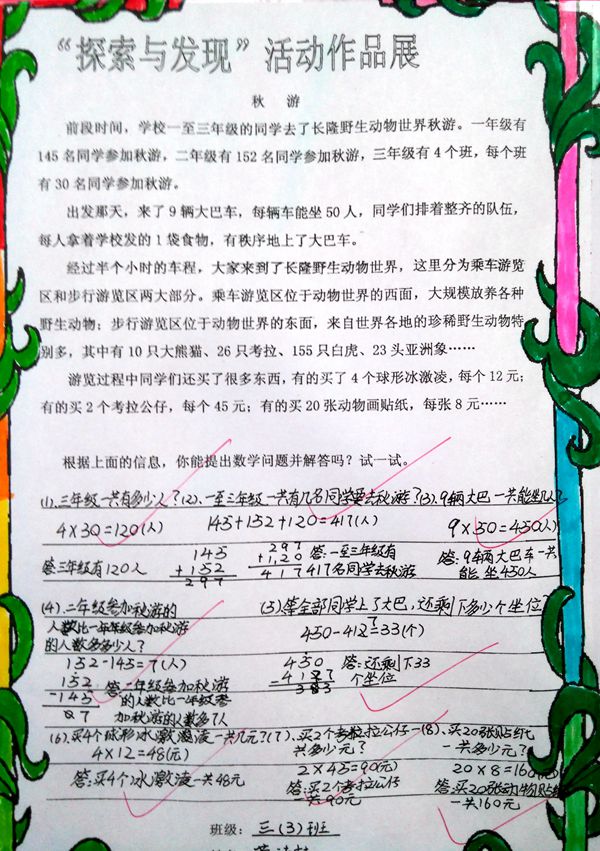 “探索与发现”活动作品展
秋 游
前段时间，学校一至三年级的同学去了长隆野生动物世界秋游。一年级有
145名同学参加秋游，二年级有152名同学参加秋游，三年级有4个班，每个班
有30名同学参加秋游。
出发那天，来了9辆大巴车，每辆车能坐50人，同学们排着整齐的队伍，
每人拿着学校发的1袋食物，有秩序地上了大巴车。
经过半个小时的车程，大家来到了长隆野生动物世界，这里分为乘车游览
区和步行游览区两大部分。乘车游览区位于动物世界的西面，大规模放养各种
野生动物；步行游览区位于动物世界的东面，来自世界各地的珍稀野生动物特
别多，其中有10只大熊猫、26只考拉、155只白虎、23头亚洲象……
游览过程中同学们还买了很多东西，有的买了4个球形冰激凌，每个12元；
有的买2个考拉公仔，每个45元；有的买20张动物画贴纸，每张8元……
根据上面的信息，你能提出数学问题并解答吗？试一试。
(1).三年级一共有多少人？(2).一至三年级一共有几名同学要去秋游？(3).9辆大巴一共能坐几人？
4×30=120(人) 145+152+120=417(人) 9×50=450(人)
答三年级有120人 145 297 答:一至三年级有 答:9辆大巴车一共
+152 +120 417名同学去秋游 能坐450人
297 417
(4).二年级参加秋游的 (5)等全部同学上了大巴,还剩下多少个座位
人数比一年级参加秋游 450-417=33(个)
的人数多多少人？
152-145=7(人) 450 答:还剩下33
152 答二年级参加秋游 -417 个座位
-145 的人数比一年级参
07 加秋游的人数多7人
(6).买4个球形冰激凌一共几元？(7).买2个考拉公仔一 (8).买20张贴纸
4×12=48(元) 共多少元？ 一共多少元？
2×45=90(元) 20×8=160(元)
答:买4个冰激凌一共48元 答:买2个考拉公仔 答:买20张动物贴纸
共90元 一共160元
班级：三(3)班